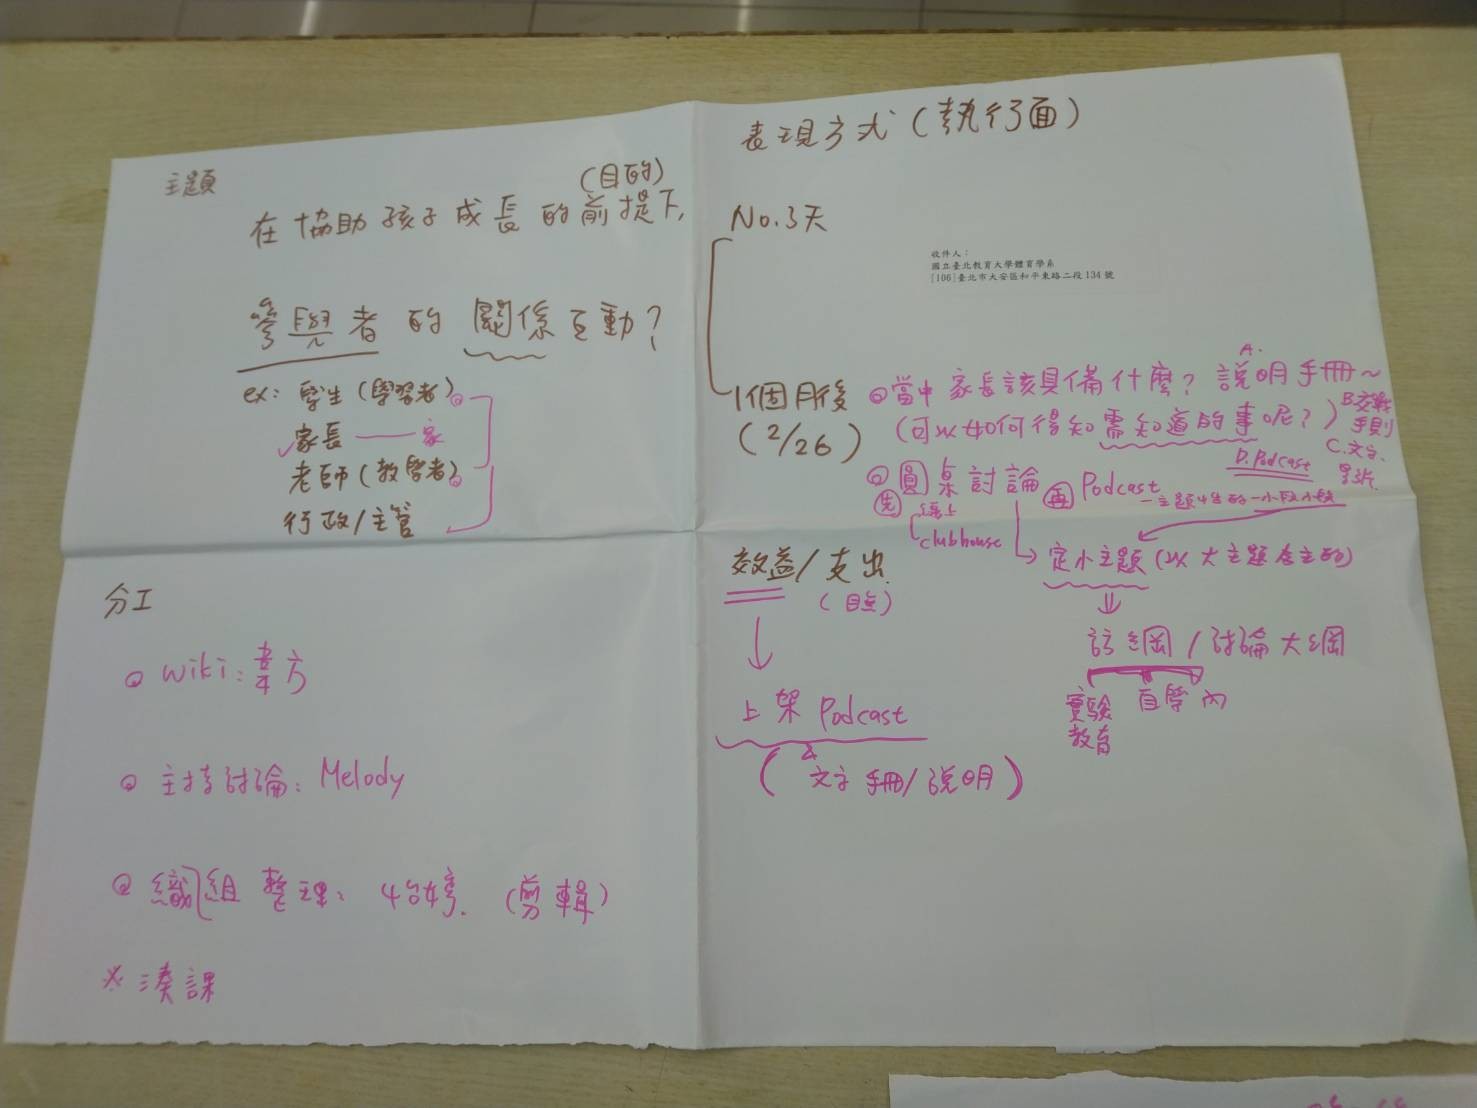 主題
(目的)
在協助孩子成長的前提下,
參與者的關係互動?
ex: 學生(學習者)
家長 — 家
老師(教學者)
行政/主管
表現方式(執行面)
No.3天
收件人:
國立臺北教育大學體育學系
[106]臺北市大安區和平東路二段134號
1個月後
(2/26)
當中家長該具備什麼? A.說明手冊~
(可以如何得知需知道的事呢?) B.交戰手則
C.文字.影片.
D.Podcast
圓桌討論 再 Podcast
先 線上
clubhouse
一主題 一小段小段
定小主題(以大主題為主的)
訪綱/討論大綱
實驗教育 自學
效益/支出
(目的)
上架Podcast
(文字手冊/說明)
分工
wiki:韋方
主持討論:Melody
組織整理: 婷. (剪輯)
※湊課